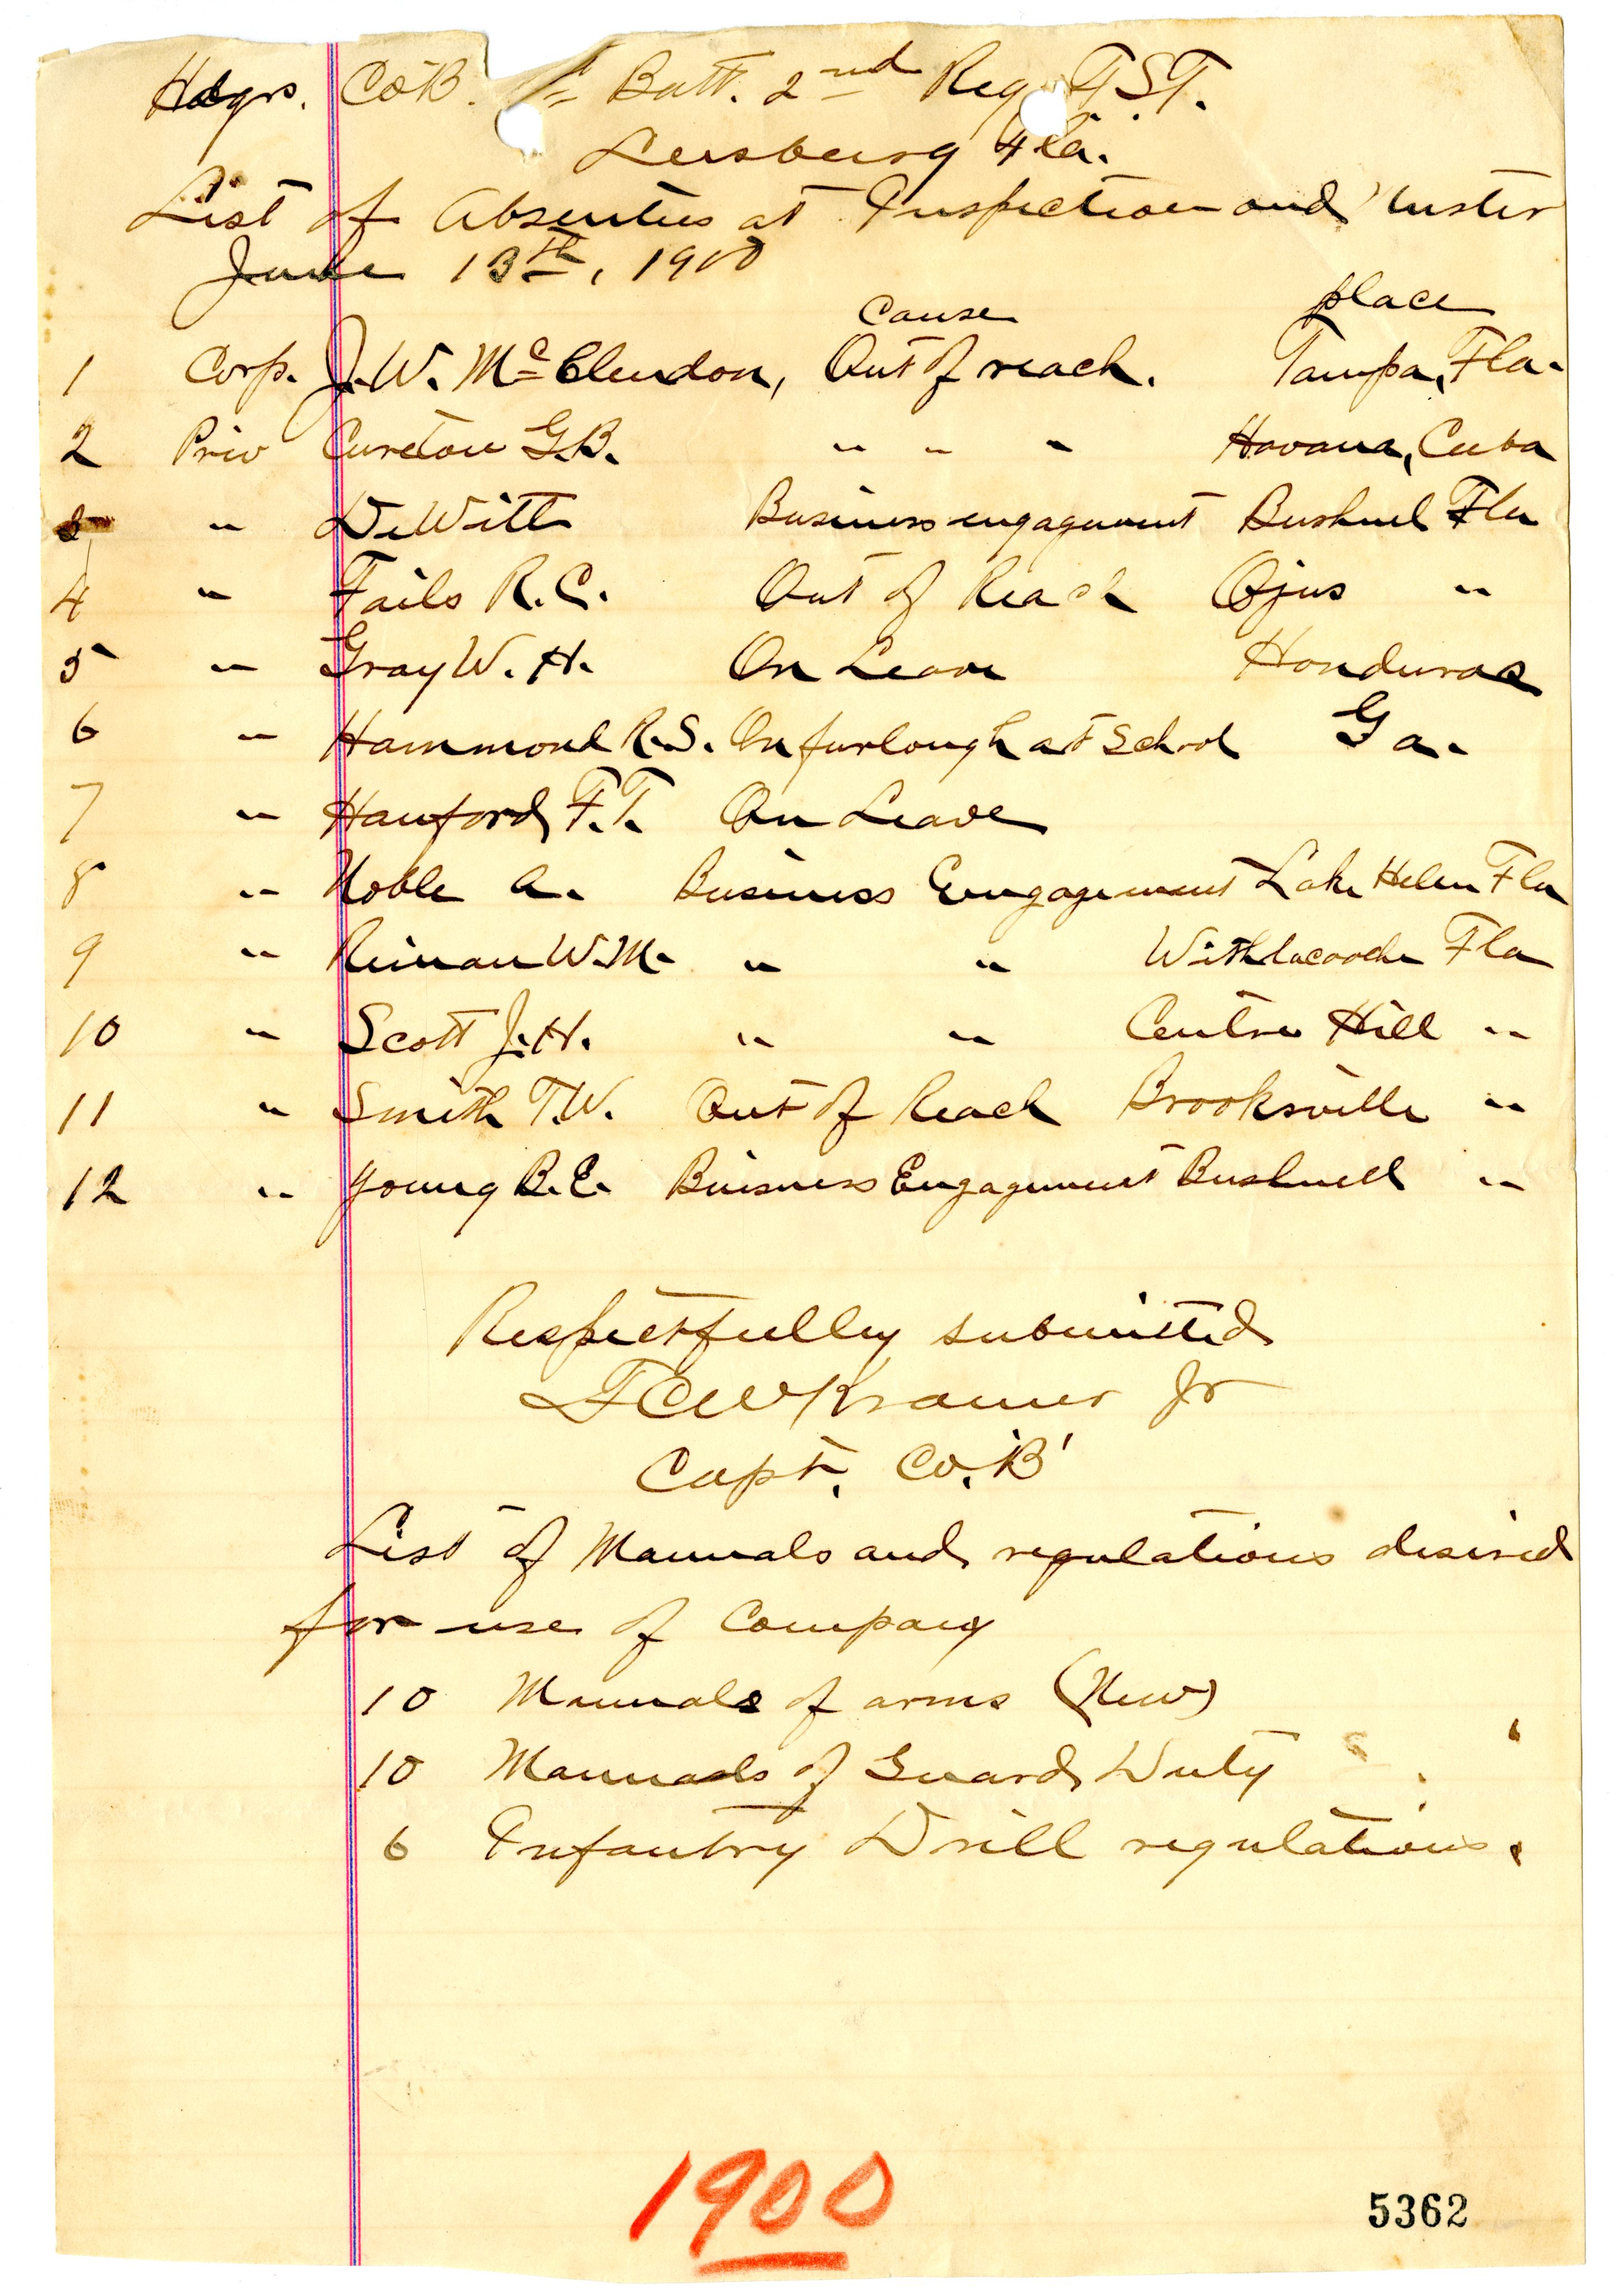 Hdqrs. Co B. Batt. 2nd Reg F.S.T.
Leesburg Fla.
List of Absentees at Inspection and Muster
June 13th, 1900
cause place
1 Corp. J.W. McClendon, Out of reach. Tampa, Fla.
2 Priv Cureton G.B. " " " Havana, Cuba
3 " DeWitt Business engagement Bushnel Fla
4 " Fails R.C. Out of Reach Ojus "
5 " Gray W.H. On Leave Honduras
6 " Hammond R.S. On furlough at School Ga.
7 " Hanford F.T. On Leave
8 " Noble A. Business Engagement Lake Helen Fla
9 " W.M. " " Withlacooche Fla
10 " Scott J.H. " " Centre Hill "
11 " Smith T.W. Out of Reach Brooksville "
12 " Young B.E. Buisness Engagement Bushnell "
Respectfully submitted
Kramer Jr
Capt. Co. 'B'
List of Manuals and regulations desired
for use of Company
10 Manuals of arms (New)
10 Manuals of Guard Duty
6 Infantry Drill regulations.
1900
5362